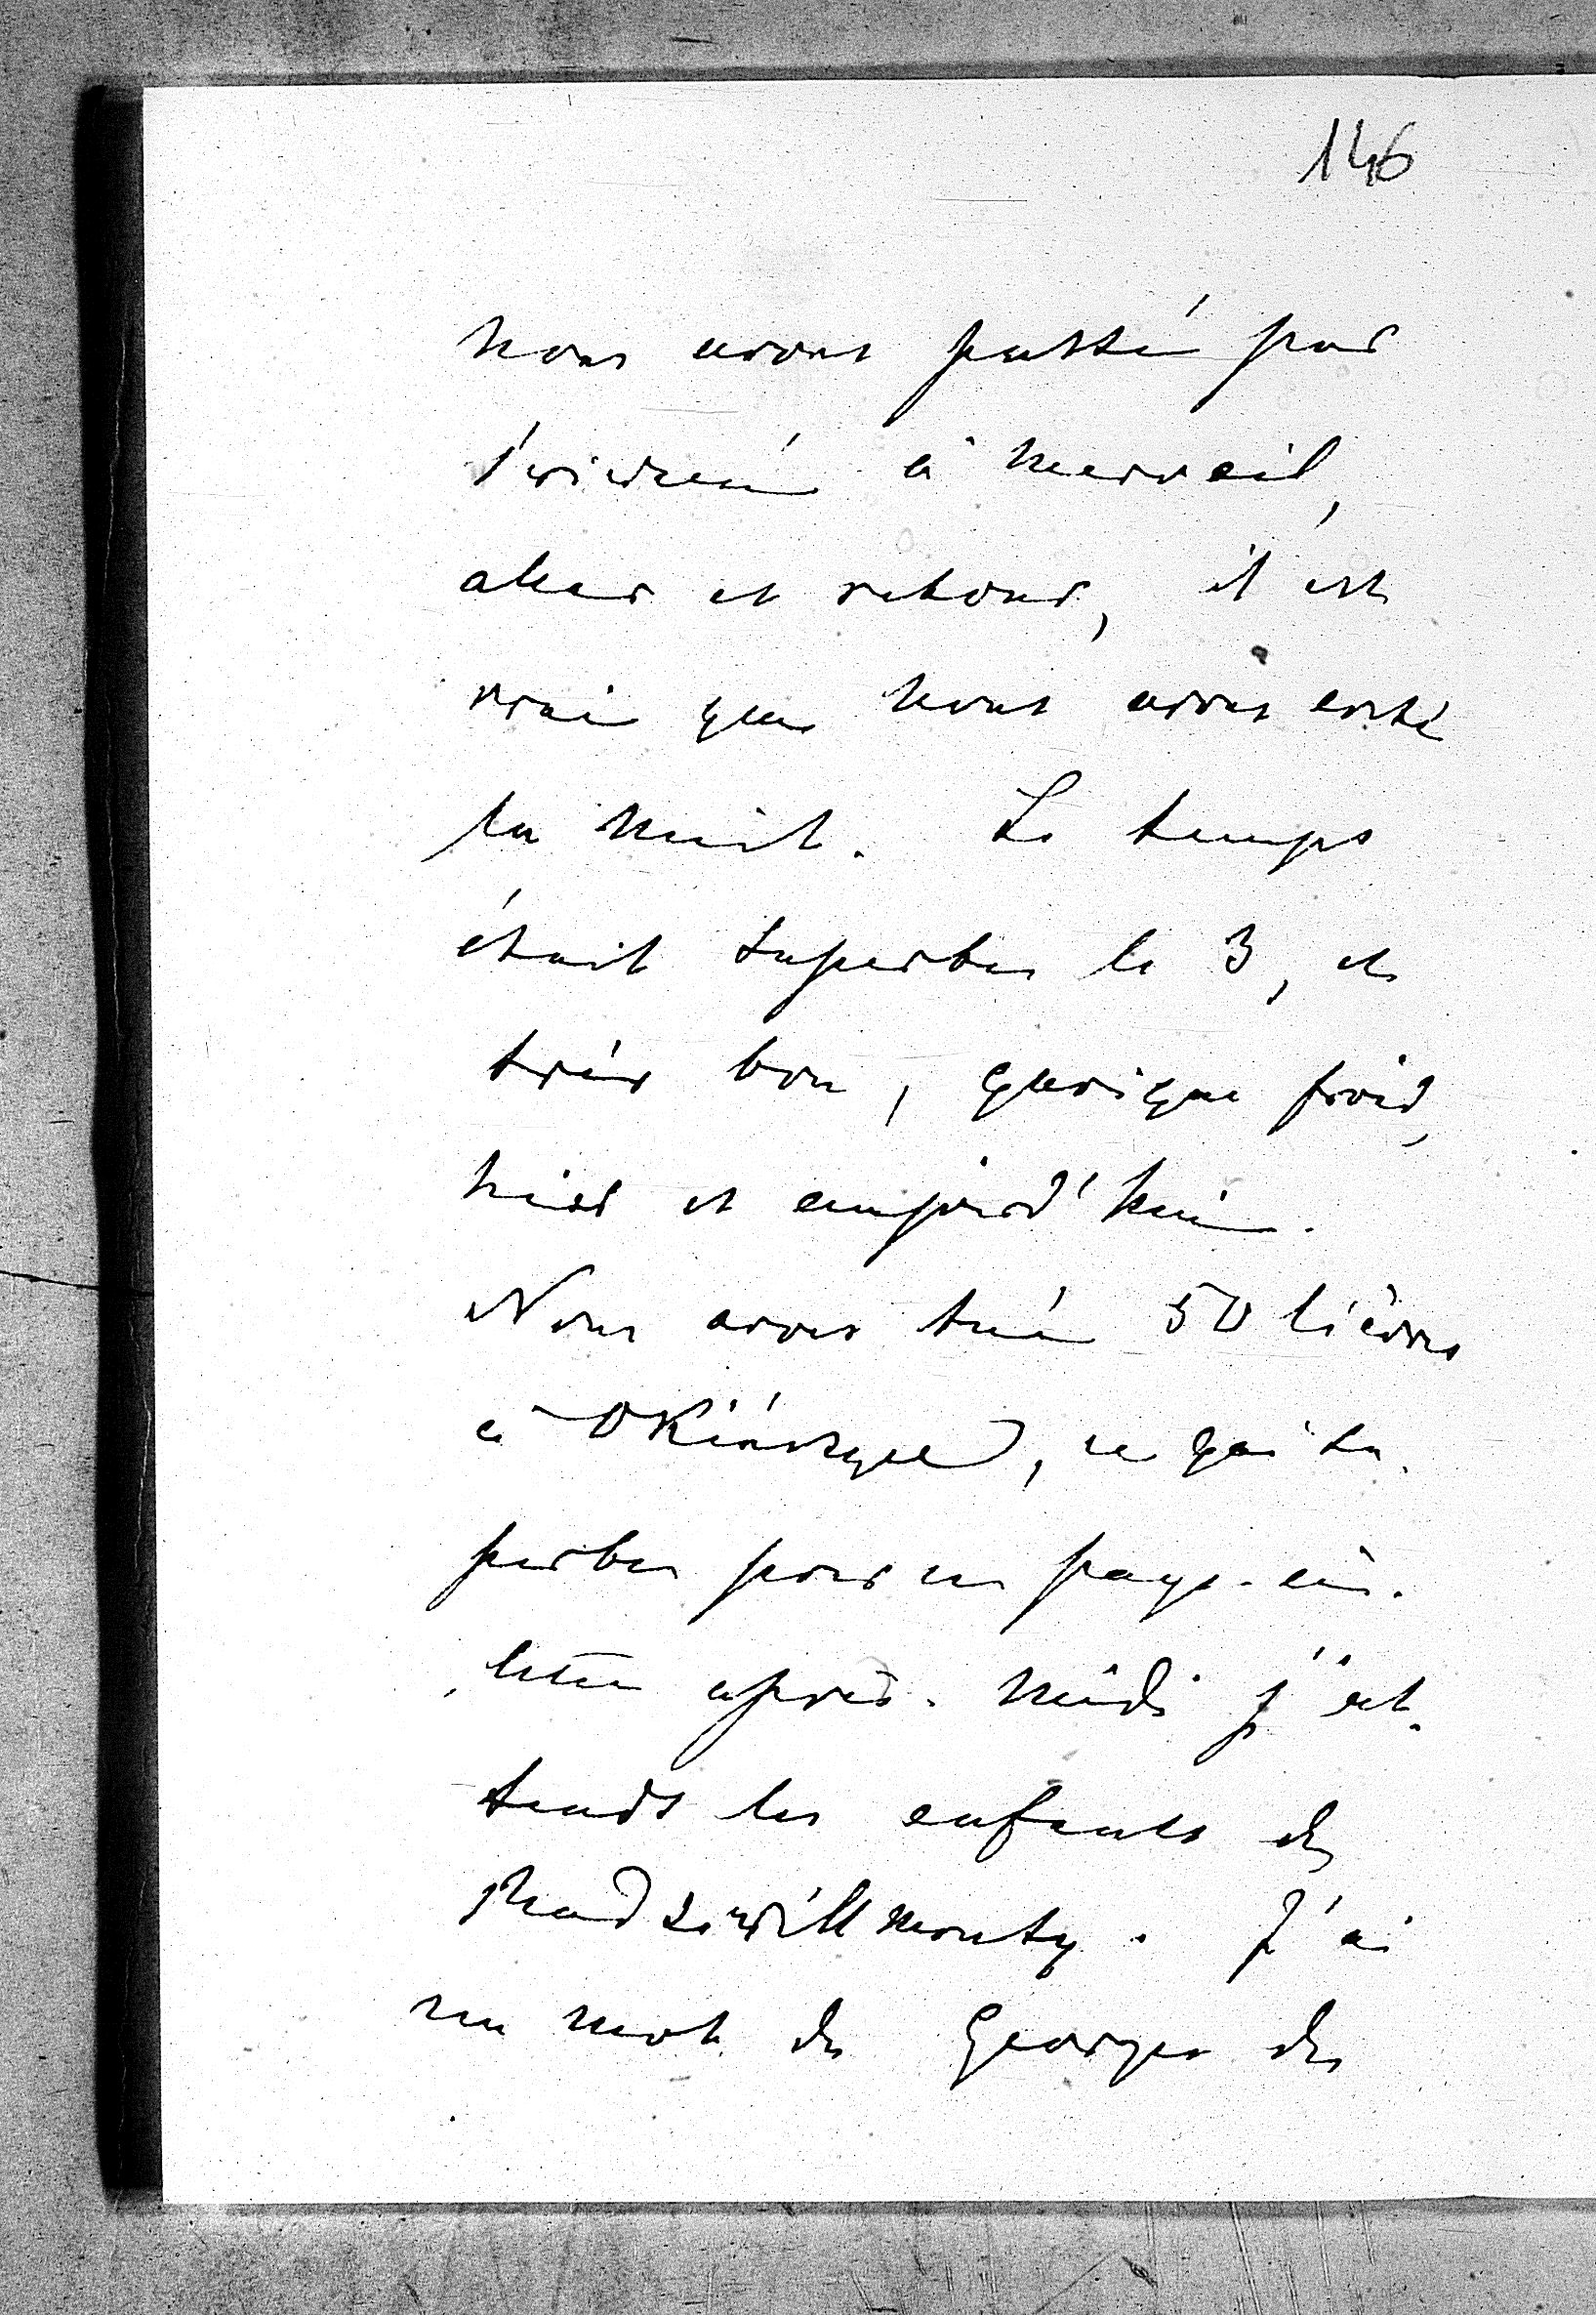 146
nous avons passé par
Świerzeń à merveil,
aller et retour, il est
vrai que nous avons évité
la nuit. Le temps
était superbe le 3, et
très bon, quoique froid,
hier et aujourd'hui.
Nous avons tué 50 lièvres
à Okińczyce, ce qui su-
perbe pour ce pays-ci.
Cette après-midi j'at-
tends les enfants de
Radziwillmonty. J'ai
un mot de Georges de